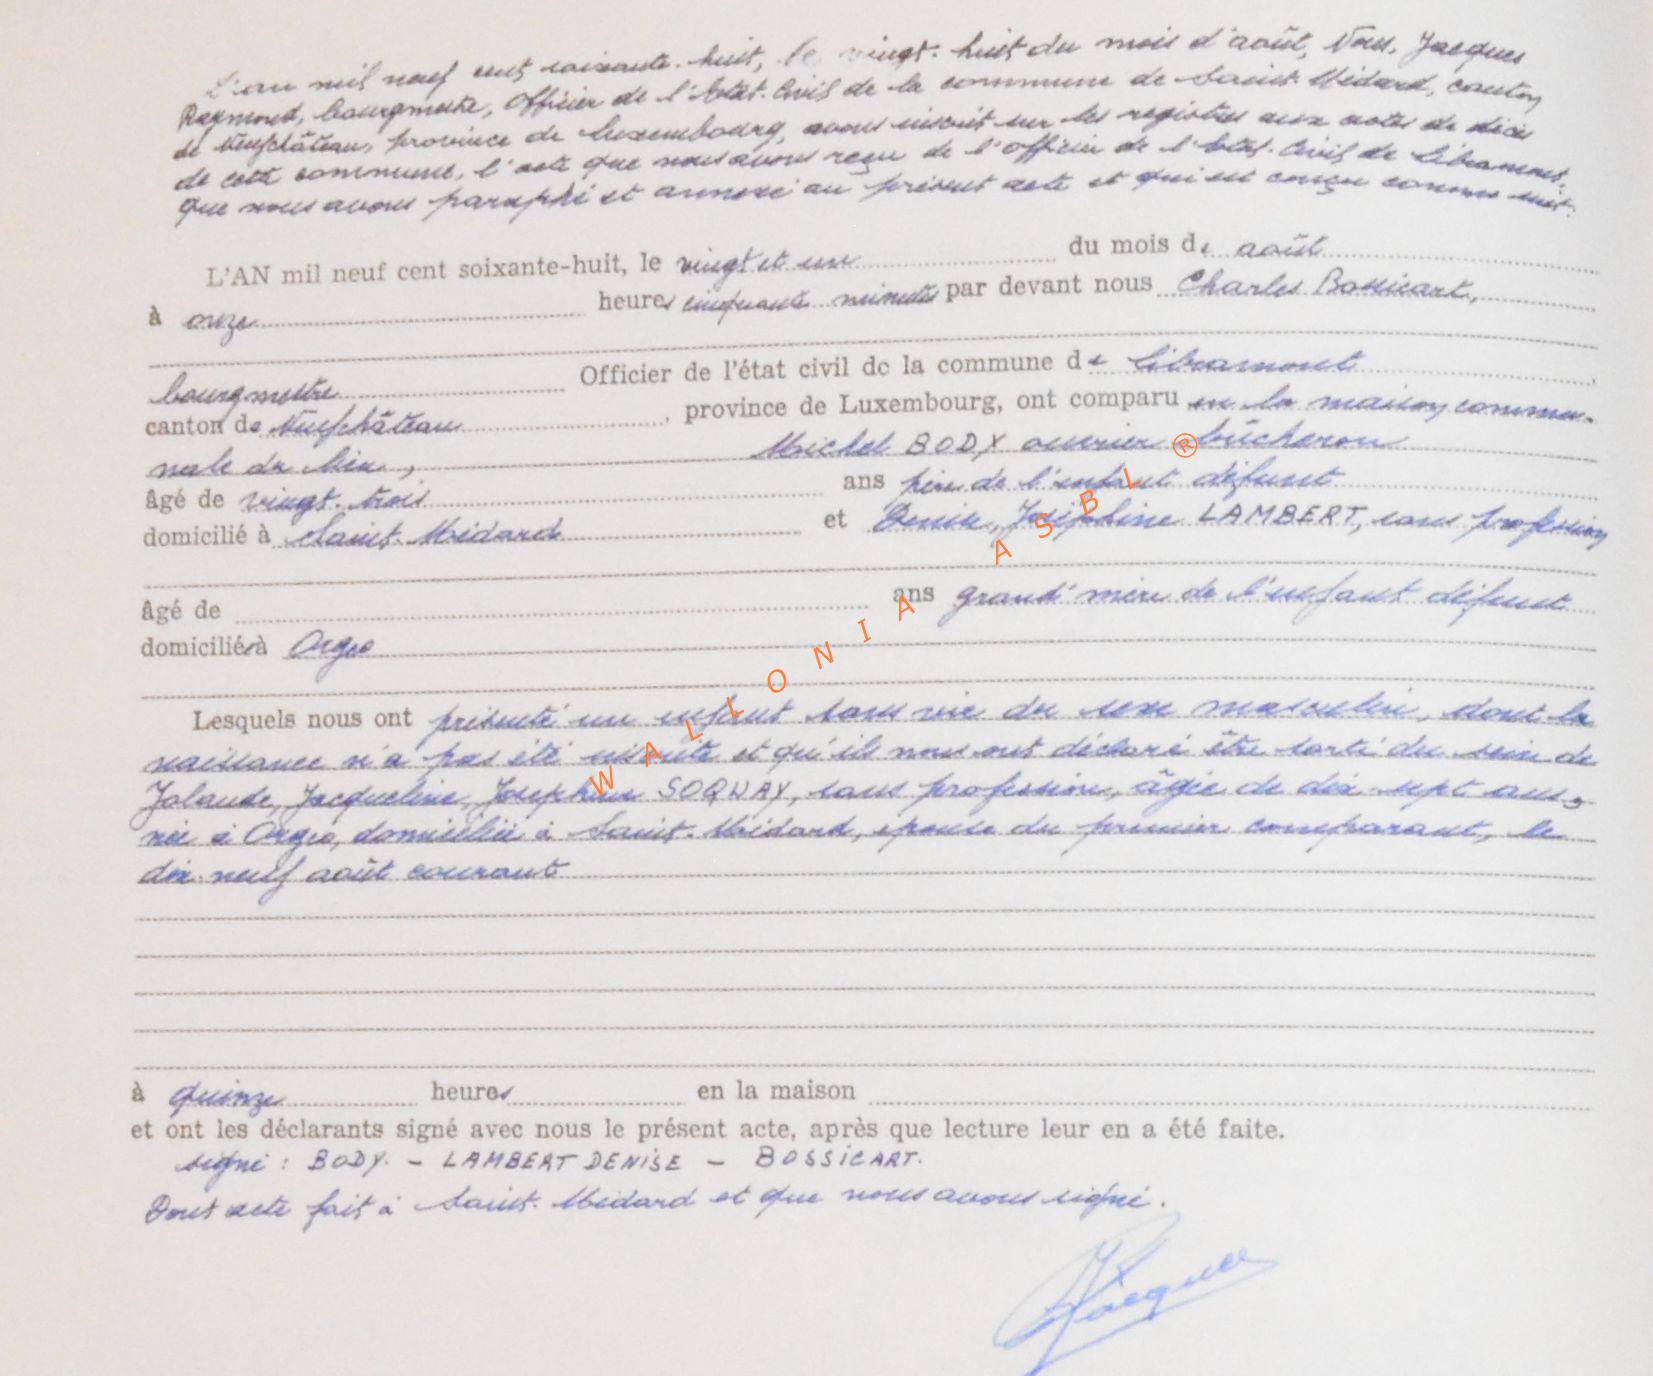 L'an mil neuf cent soixante-huit, le vingt-huit du mois d'août, Nous, Jacques
Raymond, bourgmestre, Officier de l'Etat-Civil de la commune de Saint-Médard, canton
de Neufchâteau, province de Luxembourg, avons inscrit sur les registres aux actes de décès
de cette commune, l'acte que nous avons reçu de l'Officier de l'Etat-Civil de Libramont,
que nous avons paraphé et annexé au présent acte et qui est conçu comme suit:
L'AN mil neuf cent soixante-huit, le vingt et un du mois de août
à onze heures cinquante minutes par devant nous Charles Bossicart,
bourgmestre Officier de l'état civil de la commune de Libramont,
canton de Neufchâteau, province de Luxembourg, ont comparu en la maison commu-
nale du lieu, Michel BODY ouvrier bûcheron
âgé de vingt-trois ans père de l'enfant défunt
domicilié à Saint-Médard et Denise, Joséphine LAMBERT, sans profession
âgé de ans grand'mère de l'enfant défunt
domiciliés à Orgeo
Lesquels nous ont présenté un enfant sans vie du sexe masculin, dont la
naissance n'a pas été inscrite et qu'ils nous ont déclaré être sorti du sein de
Jolande, Jacqueline, Josephine SOQUAY, sans profession, âgée de dix-sept ans,
née à Orgeo, domiciliée à Saint-Médard, épouse du premier comparant, le
dix-neuf août courant
à quinze heures en la maison
et ont les déclarants signé avec nous le présent acte, après que lecture leur en a été faite.
signé: BODY. - LAMBERT DENISE - BOSSICART.
Dont acte fait à Saint-Médard et que nous avons signé.
Jacques
WALLONIA ASBL ®